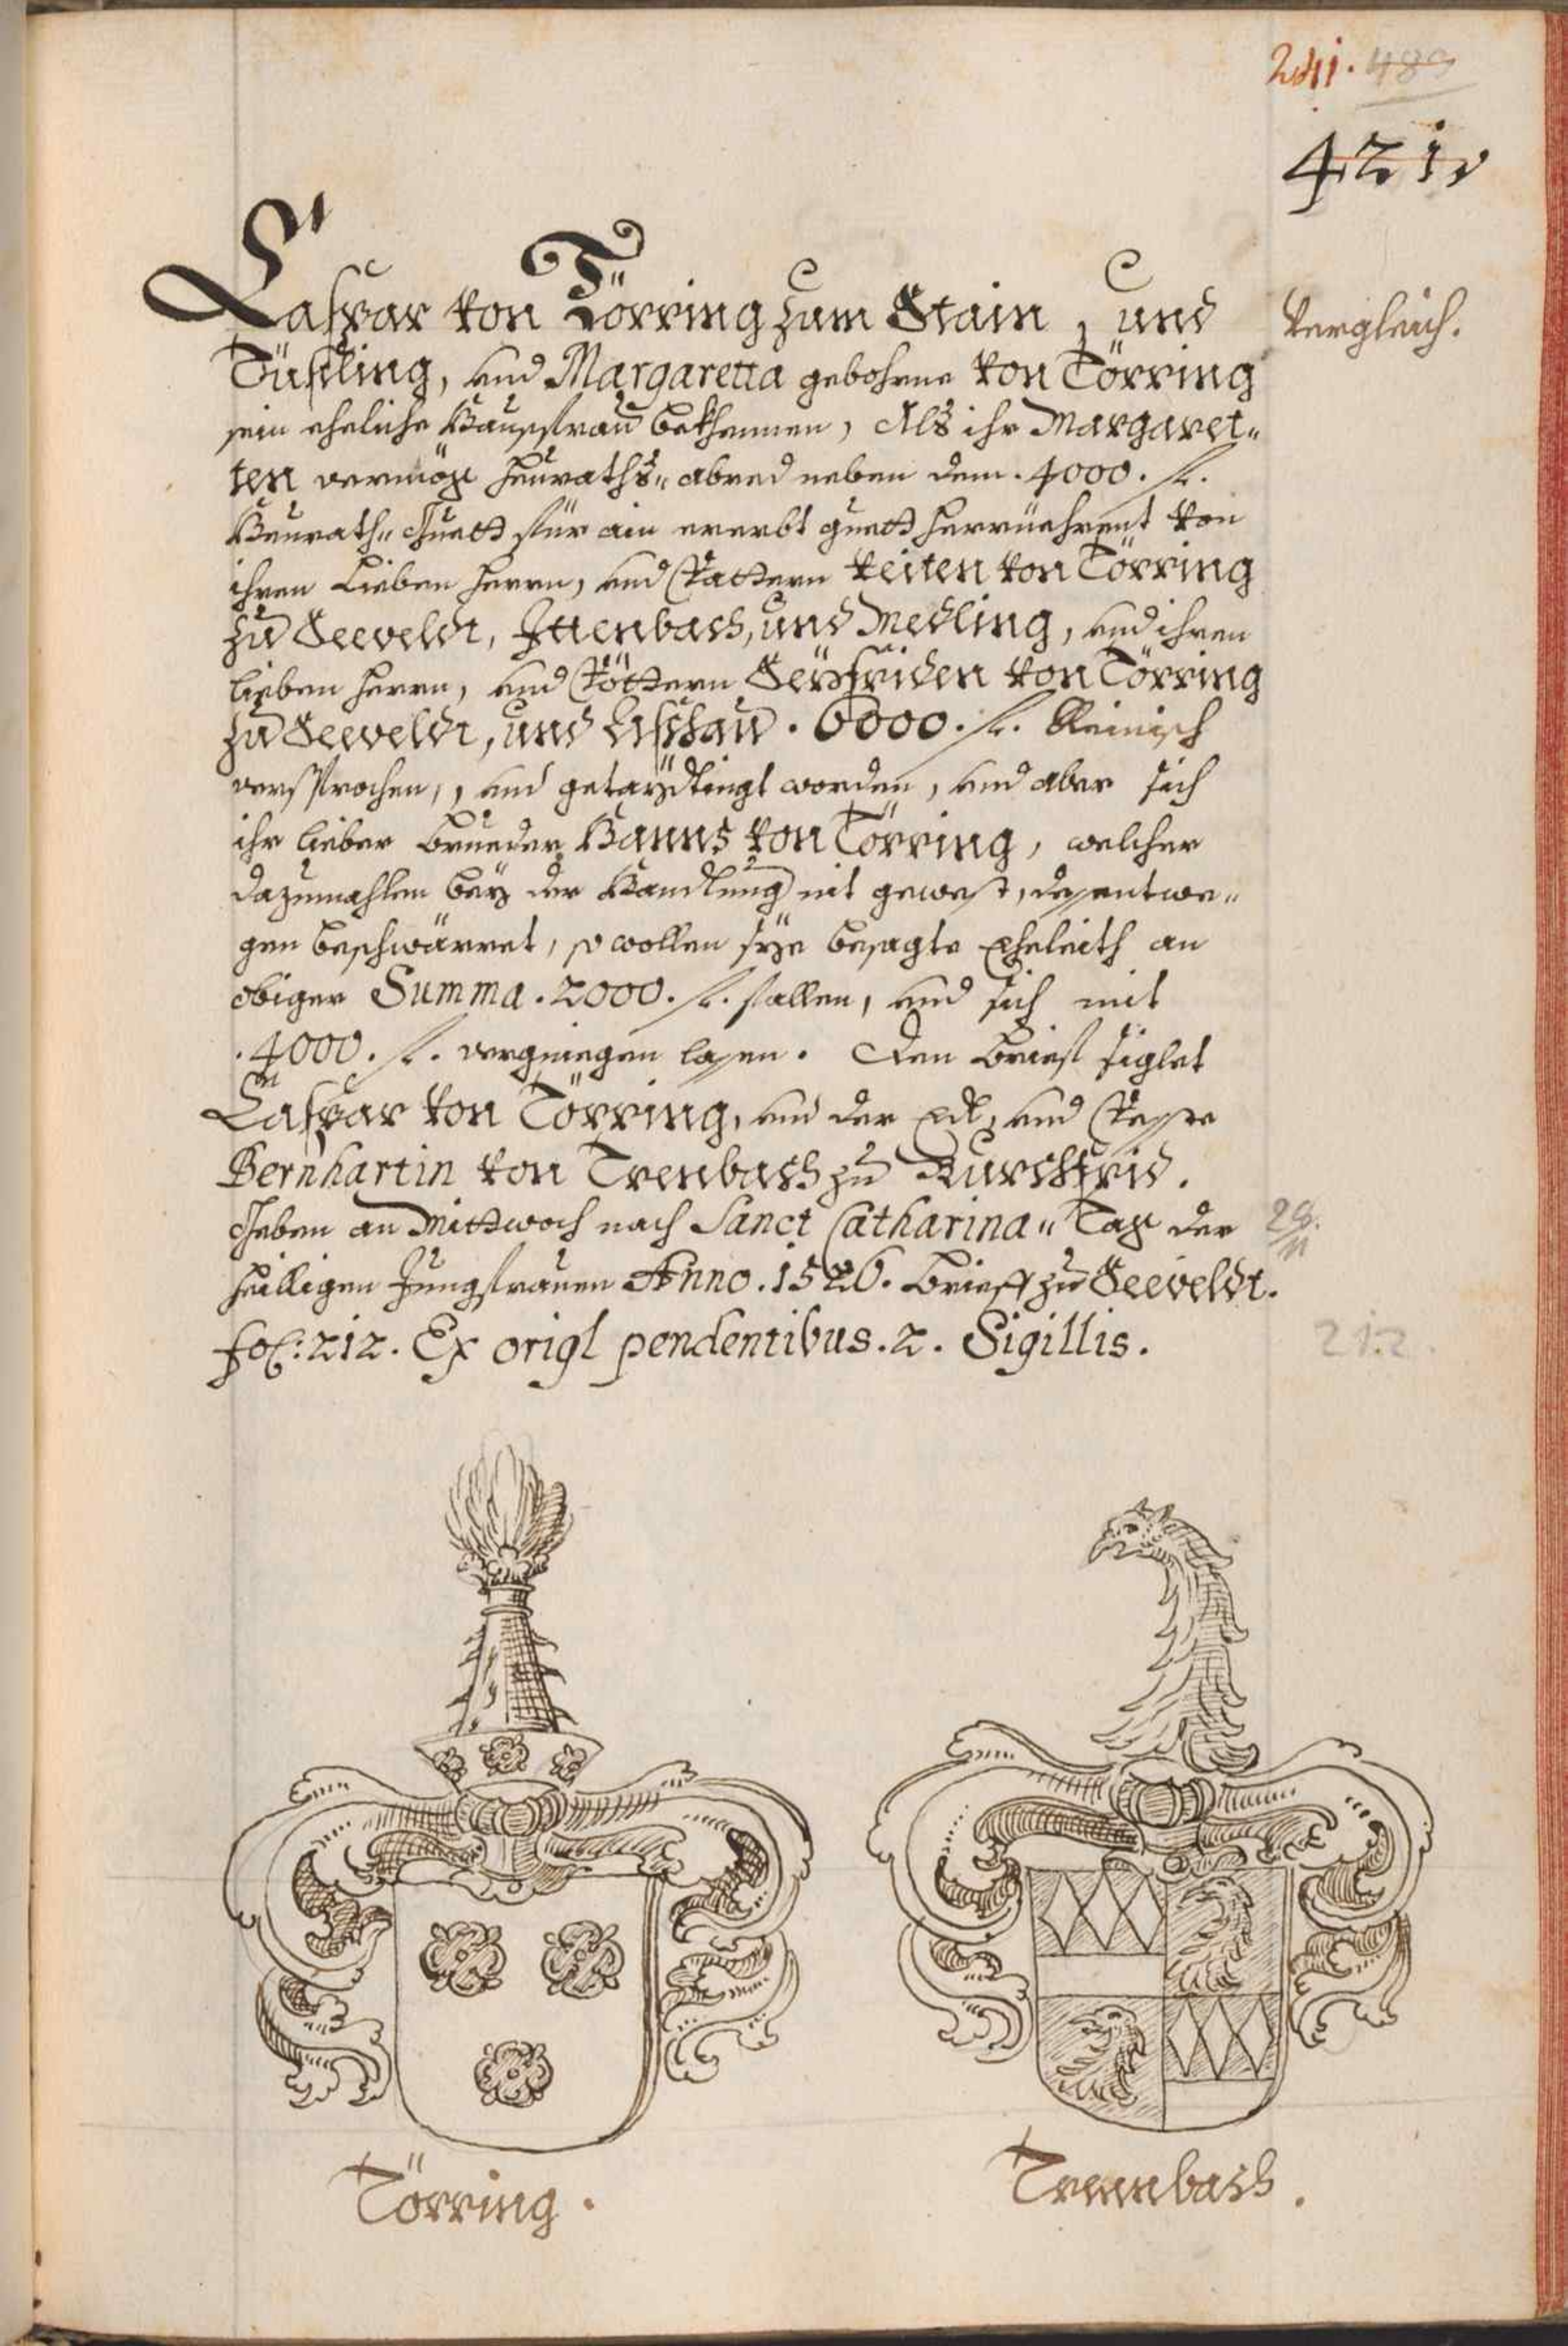 241. 489
421.
Caspar von Törring zum Stain, und
Vergleich.
Tüssling, und Margaretta gebohrne von Törring
sein eheliche Haussfrau bekhennen, Als ihr Margaret-
ten vermög Heuraths- abred neben dem . 4000 . fl.
Heurath- Guett für ain ererbt guett herrüehrent von
ihren Lieben herrn, und Vattern Veiten von Törring
zu Seeveldt, Jttenbach, und Medling, und ihren
lieben herrn, und Vöttern Seyfriden von Törring
zu Seeveldt, und . 6000 . fl. Reinisch
versprochen, und getaydtingt worden, und aber sich
ihr lieber brueder Hanns von Törring, welcher
dazumahlen bey der Handlung nit gewest, dessentwe-
gen beschwärret, so wollen sye besagte Eheleith an
obiger Summa . 2000 . fl. fallen, und sich mit
. 4000 . fl. vergniegen lassen. Den brief siglet
Caspar von Törring, und der Edl, und Vesste
Bernhartin von Trenbach zu Burckfrid.
Geben an Mittwoch nach Sanct Catharina- Tag der
28.
11
heilligen Jungfrauen Anno . 1526. brieff zu Seeveldt.
fol: 212. Ex origl pendentibus . 2 . Sigillis.
212.
Törring.
Trennbach.